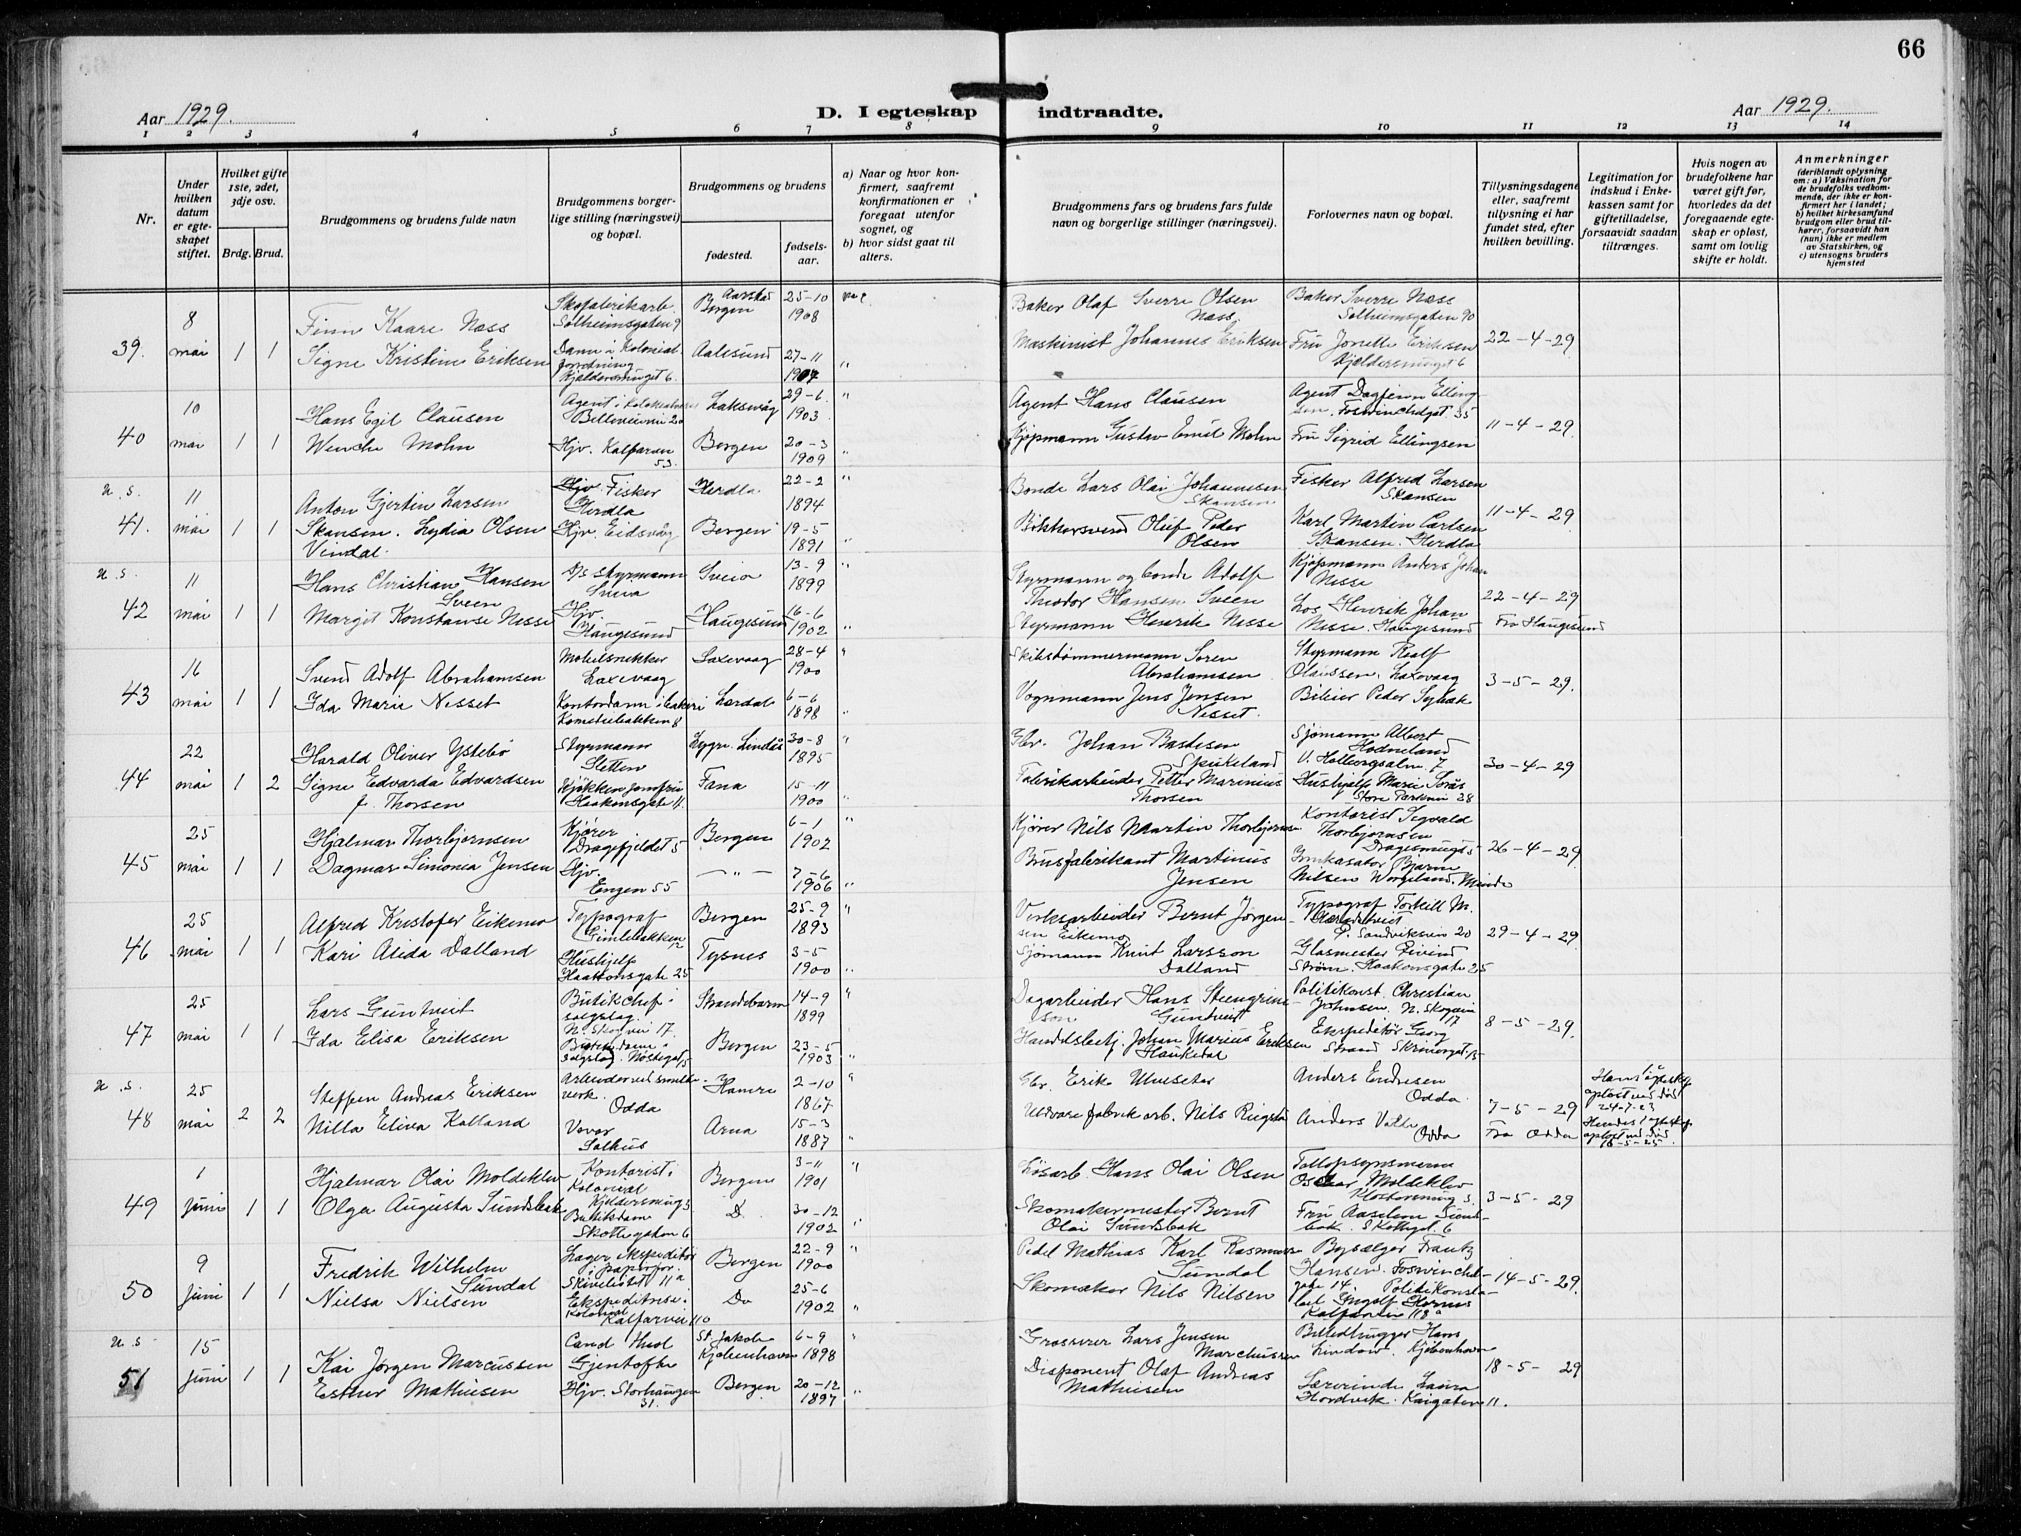 66
Aar 1929.
D. I egteskap indtraadte.
Aar 1929.
1 2 3 4 5 6 7 8 9 10 11 12 13 14
Nr.
Under hvilken datum er egte-skapet stiftet.
Hvilket gifte 1ste, 2det, 3dje osv.
Brdg. Brud.
Brudgommens og brudens fulde navn
Brudgommens og brudens borger-lige stilling (næringsvei) og bopæl.
Brudgommens og brudens
fødested.
fødsels-aar.
a) Naar og hvor kon-firmert, saafremt konfirmationen er foregaat utenfor sognet, og
b) hvor sidst gaat til alters.
Brudgommens fars og brudens fars fulde navn og borgerlige stillinger (næringsvei).
Forlovernes navn og bopæl.
Tillysningsdagene eller, saafremt tillysning ei har fundet sted, efter hvilken bevilling.
Legitimation for indskud i Enke-kassen samt for giftetilladelse, forsaavidt saadan tiltrænges.
Hvis nogen av brudefolkene har været gift før, hvorledes da det foregaaende egte-skap er opløst, samt om lovlig skifte er holdt.
Anmerkninger
(deriblandt oplysning om: a) Vaksination for de brudefolks vedkom-mende, der ikke er kon-firmert her i landet; b) hvilket kirkesamfund brudgom eller brud til-hører, forsaavidt han (hun) ikke er medlem av Statskirken, og c) utensogns bruders hjemsted
39. 8 mai 1 1
Finn Kaare Næss
Signe Kristine Eriksen
Skofabrikarb. Solheimsgaten 9
Dame i Kolonial forretning
Aarstad Bergen 25-10 1908
Aalesund 27-11 1904
Baker Olaf Sverre Olsen Næss.
Maskinist Johannes Eriksen
Baker Sverre Næss Solheimsgaten 90
Fru Jonette Eriksen
22-4-29
40 10 mai 1 1
Hans Egil Clausen
Wenche Mohn
Agent i
Hjv. Kalfarveien 53.
Laksevåg 29-6 1903
Bergen 20-3 1909
Agent Hans Clausen
Kjøpmann Gustav Emil Mohn
Agent Dagfinn Elling-sen. Foswinckelsgt. 35
Fru Sigrid Ellingsen
11-4-29
u.s.
41. 11 mai 1 1
Anton Gjertin Larsen Skansen.
Lydia Olsen Vindal.
Hjv Fisker Herdla
Hjv. Eidsvåg
Herdla 22-2 1894
Bergen 19-5 1891
Bonde Lars Olai Johannesen Skansen
Bøkkersvend Oluf Peder Olsen
Fisker Alfred Larsen Skansen
Karl Martin Carlsen Skansen. Herdla
11-4-29
u.s.
42 11 mai 1 1
Hans Christian Hansen Sveen
Margit Konstanse Nesse
Styrmann Sveio
Hjv. Haugesund
Sveio 13-9 1899
Haugesund 16-6 1902
Styrmann og bonde Adolf Theodor Hansen Sveen
Styrmann Henrik Nesse
Kjøpmann Anders Johan Nesse
Los Henrik Johan Nesse. Haugesund
22-4-29
Fra Haugesund
43 16 mai 1 1
Svend Adolf Abrahamsen
Ida Marie Nesset
Møbelsnekker Laxevaag
Kontordame i bakeri Komediebakken 8
Laxevaag 28-4 1900
Lærdal 6-6 1898
Skibstømmermann Søren Abrahamsen
Vognmann Jens Jensen Nesset.
Styrmann Rolf Olaussen. Laxevaag
Bileier Peder
3-5-29.
44 22 mai 1 2
Harald Oliver Ystebø
Signe Edvarda Edvardsen f. Thorsen
Styrmann Sletten
Kjøkkenjomfru Haakonsgate 11.
Lygre. Lindås 30-8 1895
Fana 15-11 1900
Gbr. Johan Bastesen Spikeland
Fabrikarbeider Petter Marinius Thorsen
Sjømann Albert Hodneland V. Holbergsalm. 7
Hushjelp Marie Store Parkvei 28
30-4-29
45 25 mai 1 1
Hjalmar Thorbjørnsen
Dagmar Simonia Jensen
Kjører Dragefjeldet 5
Hjv. Engen 55
Bergen 6-1 1902
— " — 7-6 1906
Kjører Nils Martin Thorbjørnsen
Brusfabrikant Martinus Jensen
Kontorist Sigvald Thorbjørnsen Dragesmuget 5
Inkasator Bjarne Nilsen Worgeland. Minde
26-4-29
46 25 mai 1 1
Alfred Kristofer Eikemo
Kari Alida Dalland
Typograf Gimlebakken 12
Hushjelp Haakonsgate 25
Bergen 25-9 1893
Tysnes 3-5 1900
Verksarbeider Bernt Jørgen-sen Eikemo
Sjømann Knut Larsson Dalland
Typograf Torkell M. P. Sandviksvei 20
Glasmester Eivind Strøm. Haakonsgate 25
29-4-29
47 25 mai 1 1
Lars Guntveit
Ida Elisa Eriksen
Butikchef i salgslag. N. Skogvei 17.
Butikdame i salgslag. Nøstegat.
Strandebarm 14-9 1899
Bergen 23-5 1903
Dagarbeider Hans Steingrims-son Guntveit
Handelsbetj. Johan Marius Eriksen Haukedal
Politikonst. Christian Johnsen. N. Skogvei 17
Ekspeditør Georg Strand Skrivergt. 13
8-5-29.
u.s.
48 25 mai 2 2
Steffen Andreas Eriksen
Nilla Elina Kalland
Arbeider ved smelte-verk. Odda
Vever Salhus
Hamre 2-10 1867
Arna 15-3 1887
Gbr. Erik
Uldvarefabrik arb. Nils Ringstad
Anders Endresen Odda.
Anders Odda
7-5-29
Fra Odda
Hans 1 egtesk. opløst ved død 24-7-23
Hendes 1 egtesk. opløst ved død 16-5-25.
49 1 Juni 1 1
Hjalmar Olai Moldeklev
Olga Augusta Sundsbak
Kontorist i Kolonial Kjeldersmug 3
Butikdame Skottegaten 6
Bergen 3-11 1901
D. 30-12 1902
Løsarb. Hans Olai Olsen
Skomakermester Bernt Olai Sundsbak
Tollopsynsmann Oskar Moldeklev Klostersmug 3.
Fru Aaselene Sunds-bak. Skottegt. 6
3-5-29
50 9 Juni 1 1
Fredrik Wilhelm Sundal
Nielsa Nielsen
Lager ekspeditør i papirfor. Skivebakk. 11a
Ekspeditrise i Kolonial Kalfarvei 110
Bergen 22-9 1900
Do 25-6 1902
Pedel Mathias Karl Rasmussen Sundal
Skomaker Nils Nilsen
Bysælger Frantz Hansen. Foswinckels-gate 14.
Politikonsta-bel Ingolf Kalfarvei 118a
14-5-29.
u.s.
51 15 Juni 1 1
Kai Jørgen Marcussen
Esther Mathiesen
Cand theol Gjentofte
Hjv. Storhaugen 31.
St Jakobs Kjøbenhavn 6-9 1898
Bergen 20-12 1897
Grosserer Lars Jensen Marchussen
Disponent Olaf Andreas Mathiesen
Billedhugger Hans Lindow. Kjøbenhavn
Lærerinde Laura Hordvik. Kaigaten 11.
18-5-29